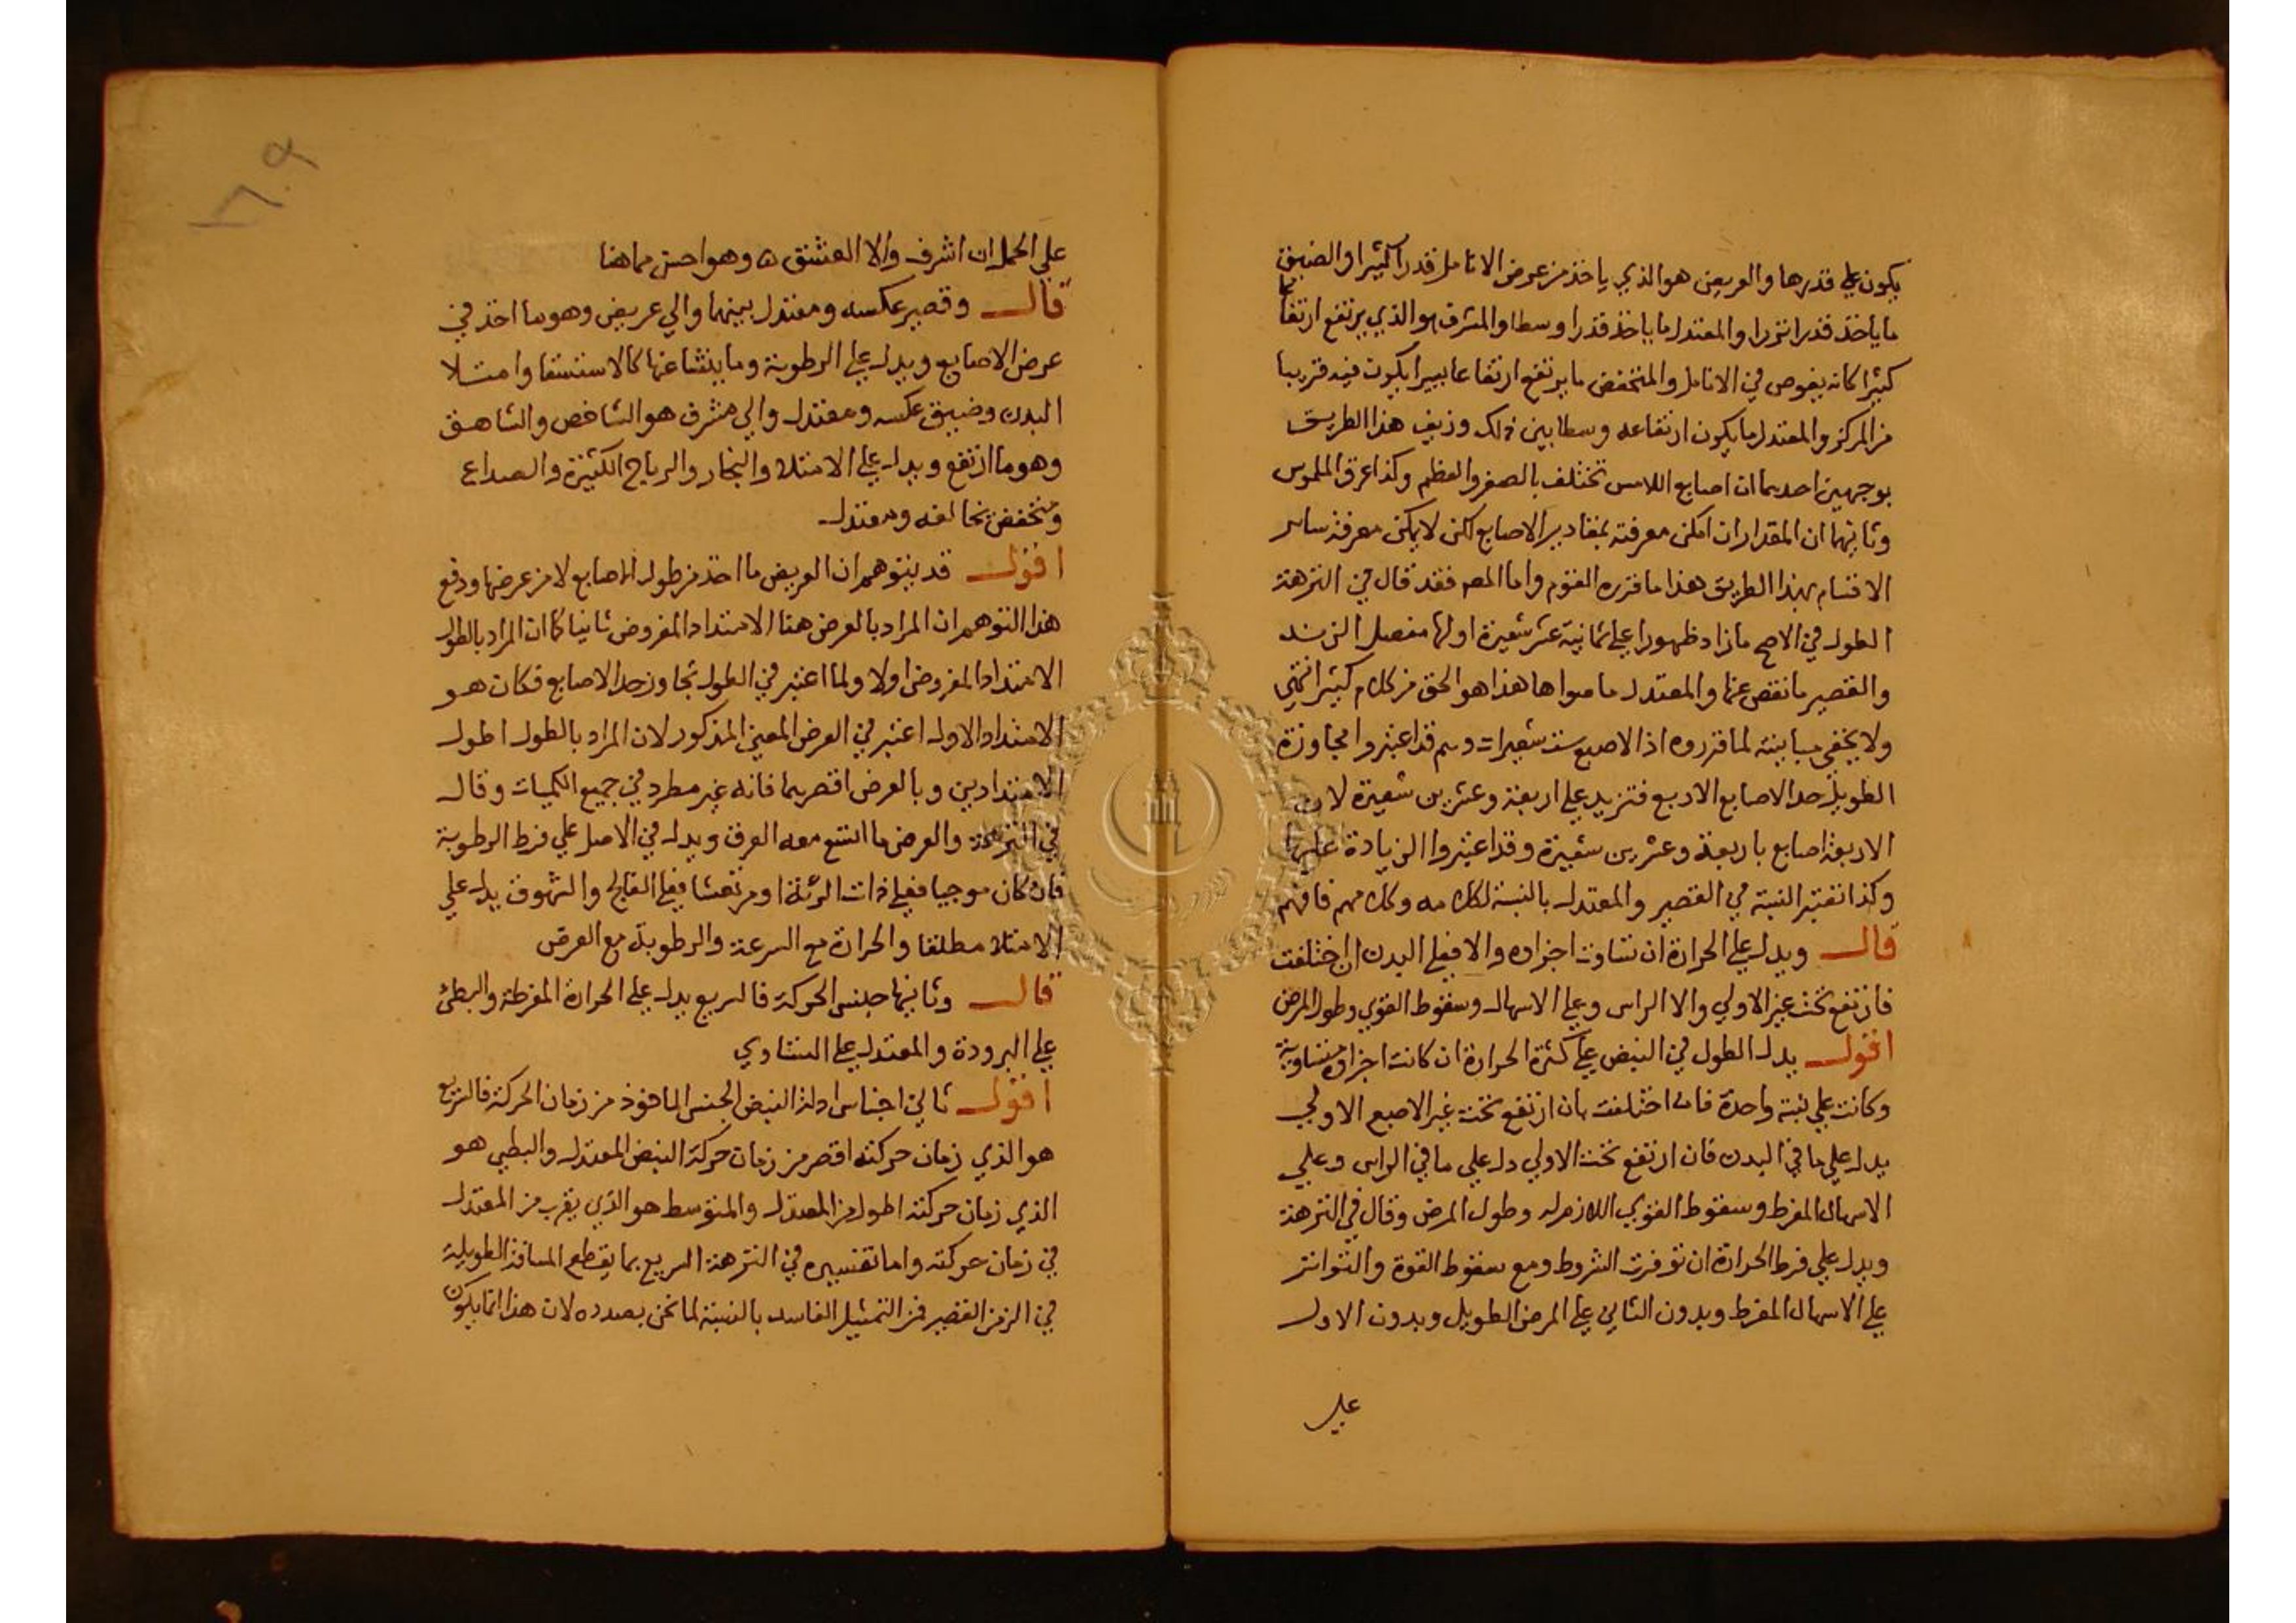 يكون علي قدرها والعريض هو الذي ياخذ من عرض الانامل قدرا كثيرا والضيق
ما ياخذ قدرا نزرا والمعتدل ما ياخذ قدرا وسطا والمشرف هو الذي يرتفع ارتفاعا
كثيرا كانه يغوص في الانامل والمنخفض ما يرتفع ارتفاعا يسيرا يكون فيه قريبا
من المركز والمعتدل ما يكون ارتفاعه وسطا بين ذلك وزيف هذا الطريق
بوجهين احدهما ان اصابع اللامس تختلف بالصغر والعظم وكذا عرق الملموس
وثانيهما ان المقدار ان امكن معرفته بمقادير الاصابع لكن لا يمكن معرفة ساير
الاقسام بهذا الطريق هذا ما قرره القوم واما المص فقد قال في النزهة
الطول في الاصح ما زاد ظهورا علي ثمانية عشر شعيرة اولها مفصل الزند
والقصير ما نقص عنها والمعتدل ما سواها هذا هو الحق من كلام كثير انتهي
ولا يخفي مباينته لما قرروه اذ الاصبع ست شعيرات وهم قد اعتبروا مجاوزة
الطويل حد الاصابع الاربع فتزيد علي اربعة وعشرين شعيرة لان
الاربعة اصابع باربعة وعشرين شعيرة وقد اعتبروا الزيادة عليها
وكذا تعتبر النسبة في القصير والمعتدل بالنسبة لكلامه وكلامهم فافهم
قال ويدل علي الحرارة ان تساوت اجزاوه والا فعلي البدن ان اختلفت
فارتفع تحت غير الاولي والا الراس وعلي الاسهال وسقوط القوي وطول المرض
اقول يدل الطول في النبض علي كثرة الحرارة ان كانت اجزاوه متساوية
وكانت علي نسبة واحدة فان اختلفت بان ارتفع تحت غير الاصبع الاولي
يدل علي ما في البدن فان ارتفع تحت الاولي دل علي ما في الراس وعلي
الاسهال المفرط وسقوط القوي اللازم له وطول المرض وقال في النزهة
ويدل علي فرط الحرارة ان توفرت الشروط ومع سقوط القوة والتواتر
علي الاسهال المفرط وبدون الثاني علي المرض الطويل وبدون الاول
علي
علي الحمل ان اشرف والا العشق ه وهو احسن مما هنا
قال وقصير عكسه ومعتدل بينهما والي عريض وهو ما اخذ في
عرض الاصابع ويدل علي الرطوبة وما ينشا عنها كالاستسقا وامتلا
البدن وضيق عكسه ومعتدل والي مشرف هو الشاخص والشاهق
وهو ما ارتفع ويدل علي الامتلا والبخار والرياح الكثيرة والصداع
ومنخفض يخالفه ومعتدل
اقول قد يتوهم ان العريض ما اخذ من طول الاصابع لا من عرضها ودفع
هذا التوهم ان المراد بالعرض هنا الامتداد المفروض ثانيا كما ان المراد بالطول
الامتداد المفروض اولا ولما اعتبر في الطول تجاوز حد الاصابع فكان هو
الامتداد الاول اعتبر في العرض المعني المذكور لان المراد بالطول اطول
الامتدادين وبالعرض اقصرهما فانه غير مطرد في جميع الكميات وقال
في النزهة والعرض ما اتسع معه العرق ويدل في الاصل علي فرط الرطوبة
فان كان موجيا فعلي ذات الرئة او مرتعشا فعلي الفالج والشهوق يدل علي
الامتلا مطلقا والحرارة مع السرعة والرطوبة مع العرض
قال وثانيها جنس الحركة فالسريع يدل علي الحرارة المفرطة والبطئ
علي البرودة والمعتدل علي التساوي
اقول ثاني اجناس ادلة النبض الجنس الماخوذ من زمان الحركة فالسريع
هو الذي زمان حركته اقصر من زمان حركة النبض المعتدل والبطي هو
الذي زمان حركته اطول من المعتدل والمتوسط هو الذي يقرب من المعتدل
في زمان حركته واما تفسيره في النزهة السريع بما يقطع المسافة الطويلة
في الزمن القصير فمن التمثيل الفاسد بالنسبة لما نحن بصدده لان هذا انما يكون